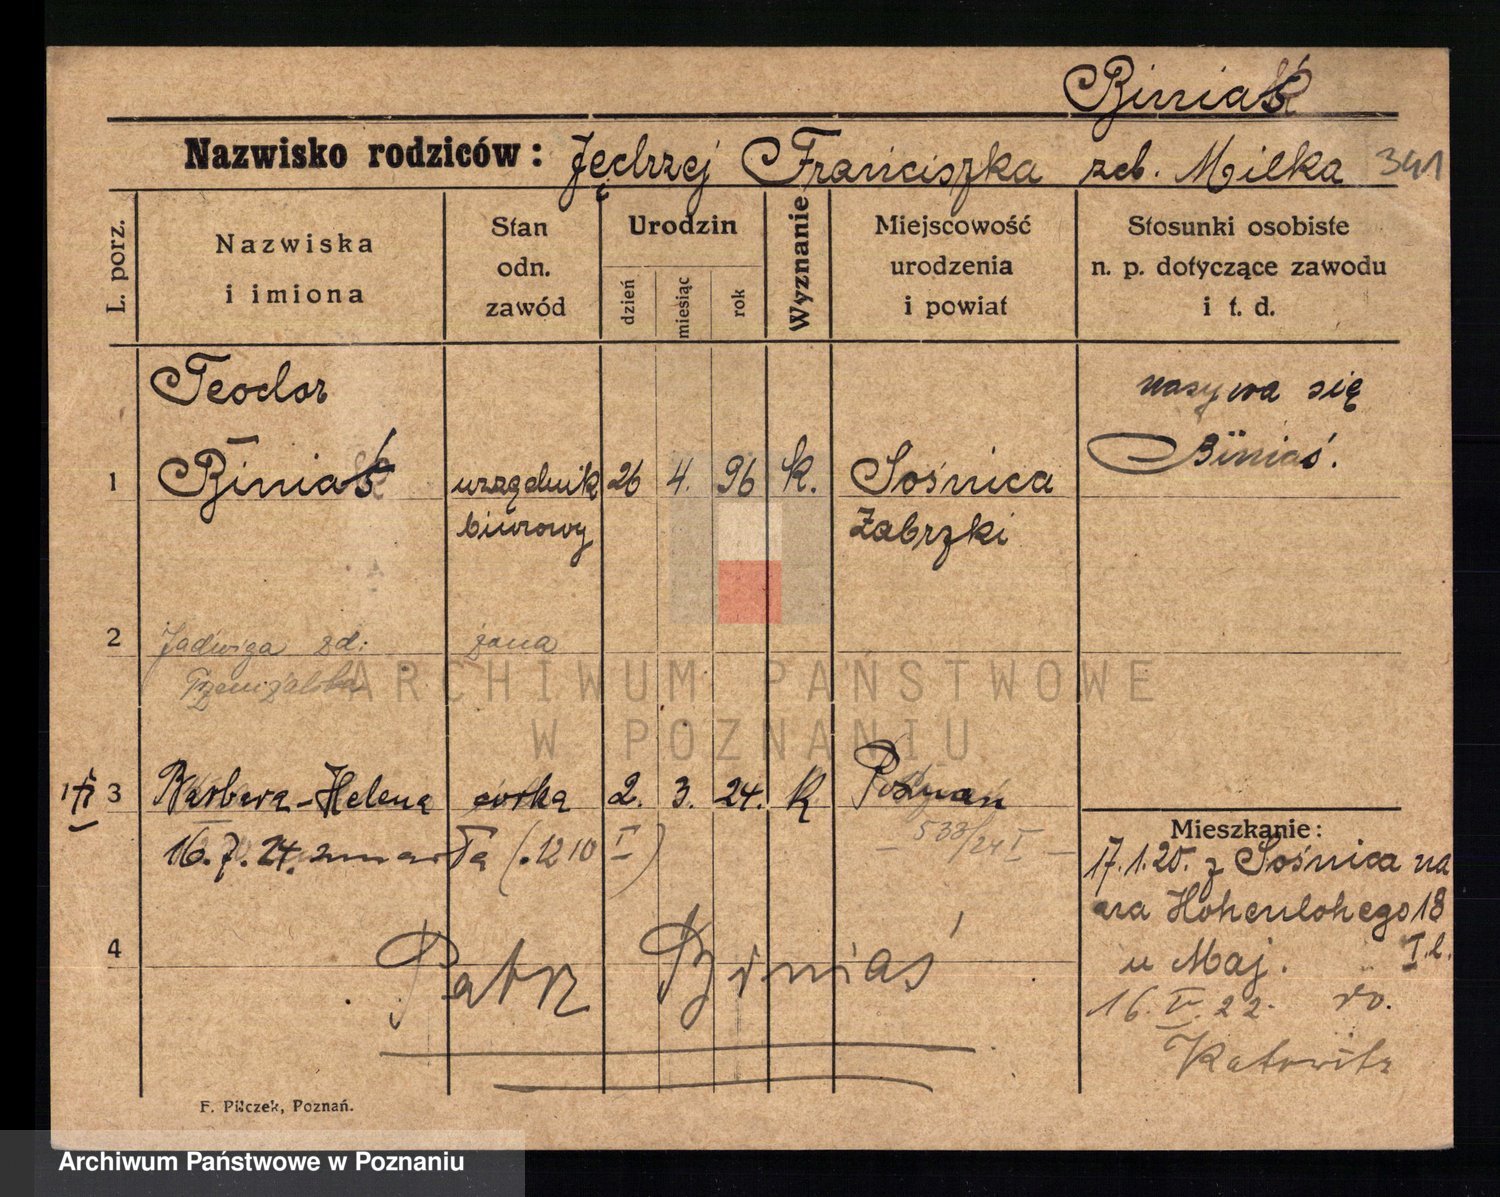 Biniaś
Nazwisko rodziców: Jędrzej Franciszka zeb. Milka 341
L. porz.
Nazwiska
i imiona
Stan
odn.
zawód
Urodzin
dzień
miesiąc
rok
Wyznanie
Miejscowość
urodzenia
i powiat
Stosunki osobiste
n. p. dotyczące zawodu
i t. d.
Teodor
1 Biniaś urzędnik 26 4. 96 k. Sośnica
biurowy Zabrzki
nazywa się
Biniaś.
2 Jadwiga zd: żona
3 Barbara-Helena córka 2. 3. 24. k Poznań
16. 7. 24. zmarła (1210 I)
533/24 I
4 Patrz Byniaś
Mieszkanie:
17.1.20. z Sośnica na
na Hohenlohego 18
u Maj. I. l.
16. V. 22. vo.
Katowitz
F. Pilczek, Poznań.
ARCHIWUM PAŃSTWOWE
W POZNANIU
Archiwum Państwowe w Poznaniu